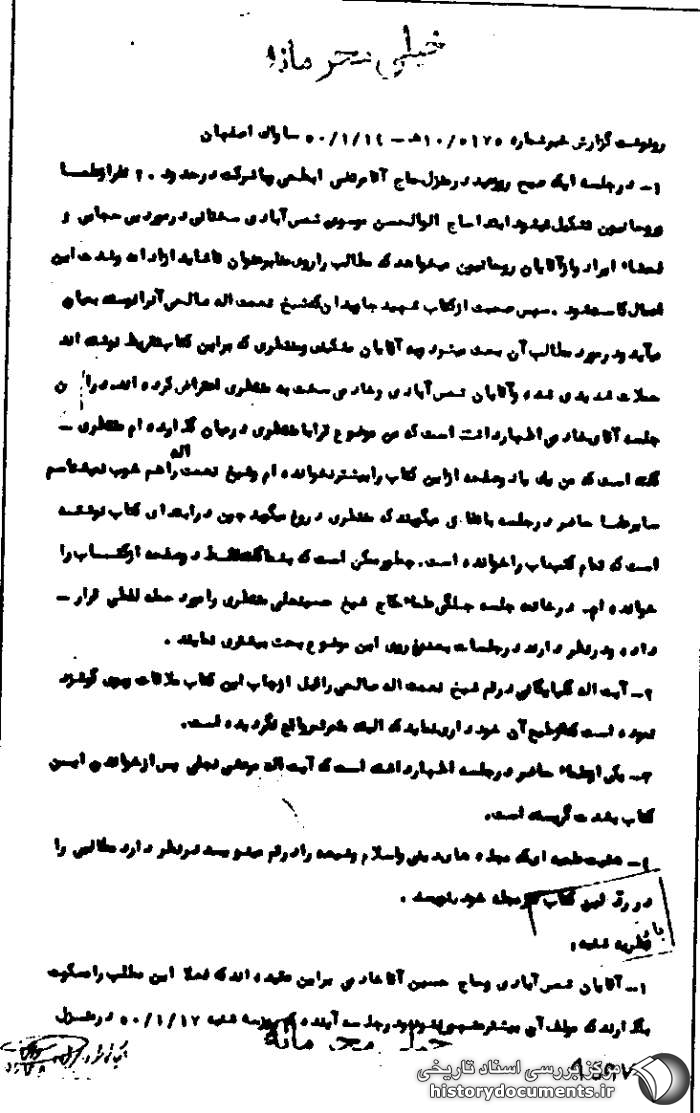 خیلی محرمانه
رونوشت گزارش خبر شماره ۱۰/۵۱۷۵ هـ – ۵۰/۱/۱۴ ساواک اصفهان
۱- در جلسه ایکه صبح در منزل حاج آقا مرتضی ابطحی با شرکت در حدود ۲۰ نفر از علما
و روحانیون تشکیل میشود ابتدا حاج ابوالحسن موسوی شمس آبادی سخنانی در مورد بی حجابی و
فحشاء ایراد و از آقایان روحانیون میخواهد که مطالب را روی منابر عنوان تا شاید از ادامه و شدت این
اعمال کاسته شود . سپس صحبت از کتاب شهید جاویدان که شیخ نعمت اله صالحی آنرا نوشته بمیان
میآید و در مورد مطالب آن بحث میشود و به آقایان مشکینی و منتظری که بر این کتاب تقریظ نوشته اند
حملات شدیدی شده و آقایان شمس آبادی و خادمی سخت به منتظری اعتراض کرده اند. در این
جلسه آقای خادمی اظهار داشته است که من موضوع را با منتظری در میان گذارده ام منتظری –
گفته است که من یک یا دو صفحه از این کتاب را بیشتر نخوانده ام و شیخ نعمت اله را هم خوب نمیشناسم
سایر علما حاضر در جلسه با میگویند که منتظری دروغ میگوید چون در ابتدای کتاب نوشته
است که تمام کتاب را خوانده است . چطور ممکن است که بشما گفته فقط دو صفحه از کتاب را
خوانده ام. در خاتمه جلسه جملگی علماء حاج شیخ حسینعلی منتظری را مورد حمله لفظی قرار –
داده و در نظر دارند در جلسات بعدی روی این موضوع بحث بیشتری نمایند .
۲- آیت اله گلپایگانی در قم شیخ نعمت اله صالحی را قبل از چاپ این کتاب ملاقات و بوی گوشزد
نموده است که از طبع آن خودداری نماید که البته مؤثر واقع نگردیده است.
۳- یکی از علماء حاضر در جلسه اظهار داشته است که آیت اله مرعشی نجفی پس از خواندن این
کتاب بشدت گریسته است.
۴- هیئت علمیه ایکه مجله های دینی و اسلام و شیعه را در قم مینویسد در نظر دارد مطالبی را
در رد این کتاب در مجله خود بنویسد .
نظریه شنبه :
۱- آقایان شمس آبادی و حاج حسین آقا خادمی بر این عقیده اند که فعلا این مطلب را مسکوت
بگذارند که مولف آن بیشتر مشهور نشود و در جلسه آینده که روز سه شنبه ۵۰/۱/۱۷ در منزل
خیلی محرمانه
مرکز بررسی اسناد تاریخی
historydocuments.ir